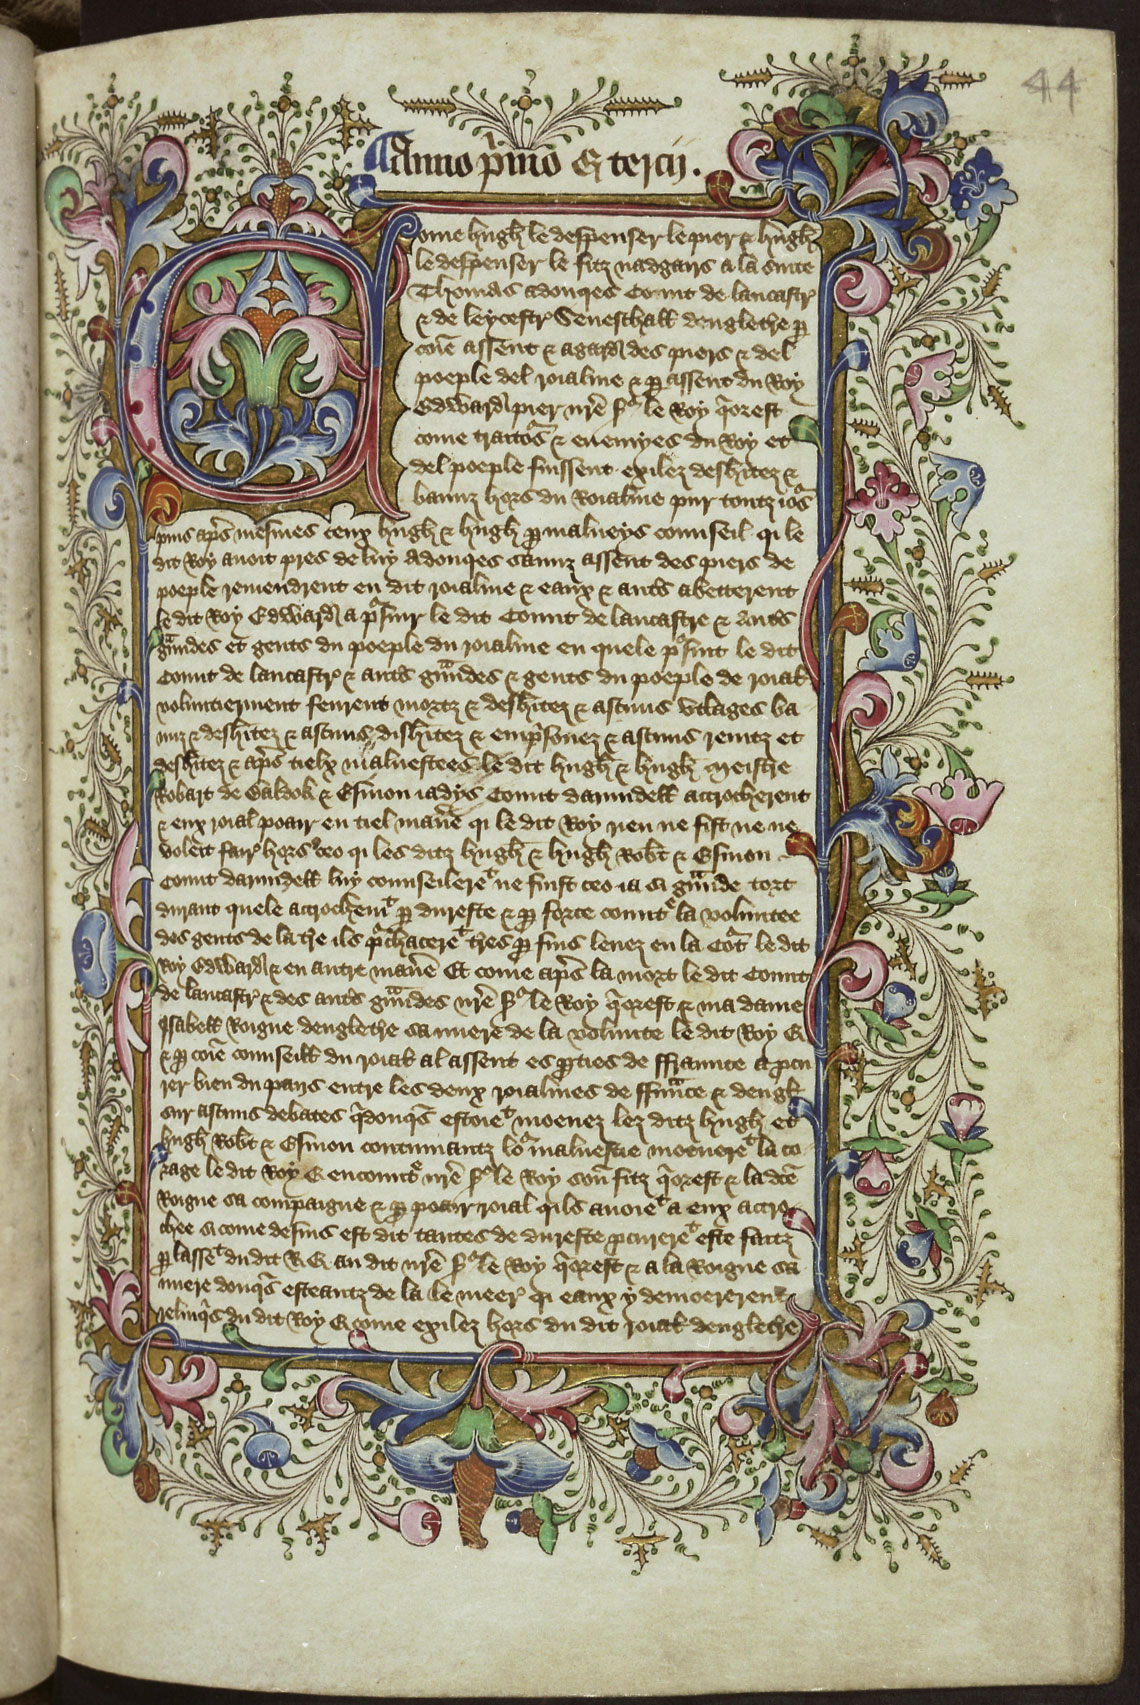 44
Anno p̄mo E tercij.
Come hugħ le despenser le pier ⁊ hugħ
le despenser le fitz nadgairs a la suite
Thomas adonqes Count de lancastr̄
⁊ de leycestr̄ Seneschall dengleťre ꝑ
coē assent ⁊ agard des piers ⁊ del
poeple del roialme ⁊ ꝑ assent du Roy
Edward pier nr̄e sr̄ le Roy q̄orest
come traitōs ⁊ enemyes du Roy et
del poeple fuissent exilez desħitez ⁊
baniz hors du Roialme pur toutz iōs
puis ap̄s mesmes ceux hugħ ⁊ hugħ ꝑ malueys counseil qi le
dit Roy auoit pres de luy Adonqes saunz assent des piers de
poeple reuendrent en dit roialme ⁊ eaux ⁊ aut̄s abetterent
le dit Roy Edward a p̄suir le dit Count de lancastre ⁊ aut̄s
g̃ndes et gents du poeple du roialme en quele p̄suit le dit
Count de lancastr̄ ⁊ aut̄s g̃ndes ⁊ gents du poeple de roial̄
volunтierment feurent mortz ⁊ desħitez ⁊ ascuns vtlages ba
niz ⁊ desħitez ⁊ ascuns disħitez ⁊ emp̄sonez ⁊ ascuns reintz et
desħitez ⁊ ap̄s tielx maluestees le dit hugħ ⁊ hugħ Meistre
Robart de Baldok ⁊ Esmon iadys Count darundell accrocherent
⁊ eux roial poair en tiel man̄e qi le dit Roy rien ne fist ne ne
voleit fair hors ceo qi les ditz hugħ ⁊ hugħ Rob̄t ⁊ Esmon
Count darundell luy counseilerēt ne fuist ceo ia si g̃nde tort
durant quele accrochem̄t ꝑ duresce ⁊ ꝑ force countē la voluntee
des gents de la ťre ils p̄chacerēt ťres ꝑ fins leuez en la Co͂t le dit
Roy Edward ⁊ en autre man̄e Et come ap̄s la mort le dit Count
de lancastr̄ ⁊ des aut̄s g̃ndes nr̄e sr̄ le Roy q̄orest ⁊ ma dame
Isabell Roigne dengleťre sa miere de la volunte le dit Roy E
⁊ ꝑ coē counseill du roial̄ al assent es ꝑties de ffraunce a pcu
rer bien du pays entre les deux roialmes de ffr̃nce ⁊ dengl̄
sur ascuns debates q̄donqs estoiēt moenez lez ditz hugħ et
hugħ Rob̄t ⁊ Esmon continuantz lō maluestie moeuerēt la co
rage le dit Roy E encountr̄ nr̄e sr̄ le Roy soun fitz q̄orest ⁊ la dc̄e
Roigne sa compaigne ⁊ ꝑ poair roial qils auoiēt a eux accro
chee si come desus est dit tantes de duresce ꝓcurerēt estre faitz
ꝑ lassēt du dit R. E. au dit nr̄e sr̄ le Roy q̄orest ⁊ a la Roigne sa
miere donqs esteantz de la le meer qi eaux y demoererent
relinqs du dit Roy E come exilez hors du dit roial̄ dengleťre